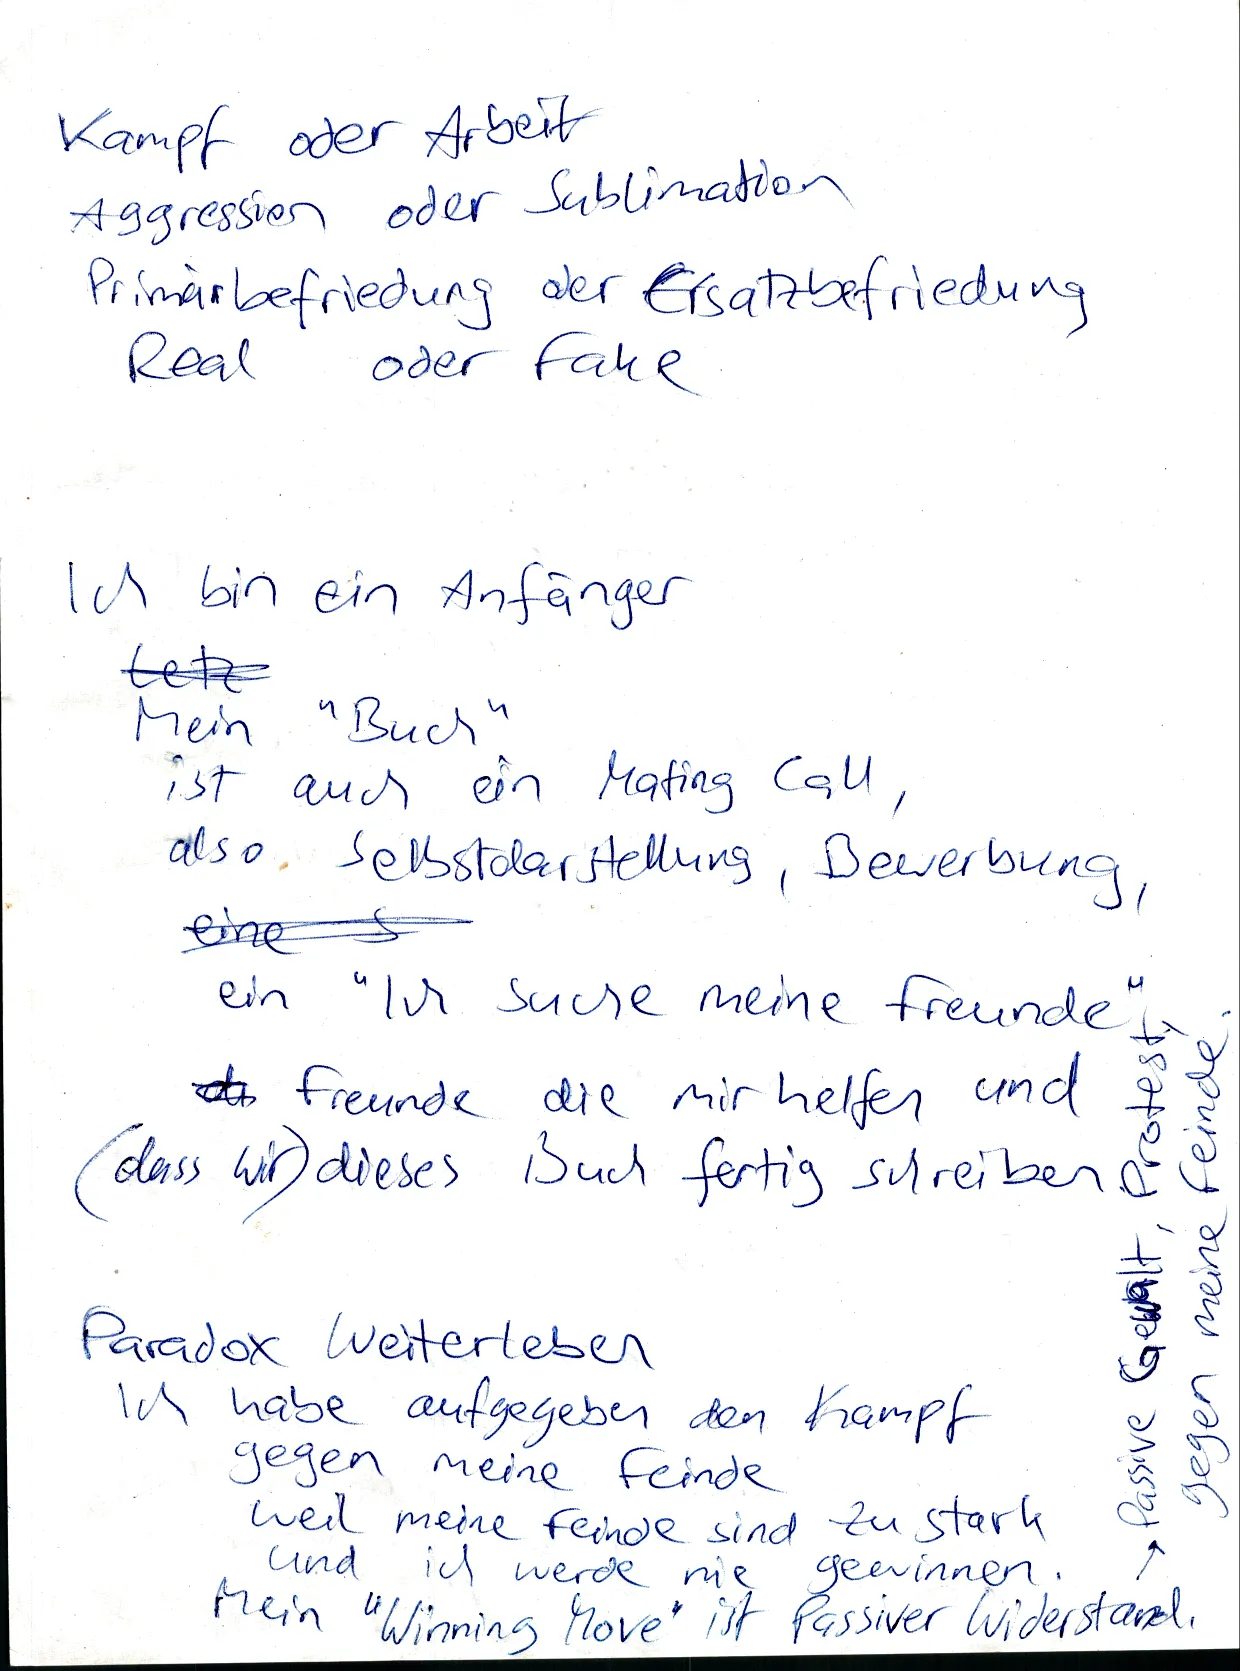 Kampf oder Arbeit
Aggression oder Sublimation
Primärbefriedung oder Ersatzbefriedung
Real oder Fake
Ich bin ein Anfänger
Letz
Mein "Buch"
ist auch ein Mating Call,
also Selbstdarstellung, Bewerbung,
eine S
ein "Ich suche meine Freunde"
Freunde die mir helfen und
(dass wir) dieses Buch fertig schreiben
Paradox Weiterleben
Ich habe aufgegeben den Kampf
gegen meine Feinde
weil meine Feinde sind zu stark
und ich werde nie gewinnen.
Mein "Winning Move" ist Passiver Widerstand.
→ Passive Gewalt, Protest,
gegen meine Feinde.